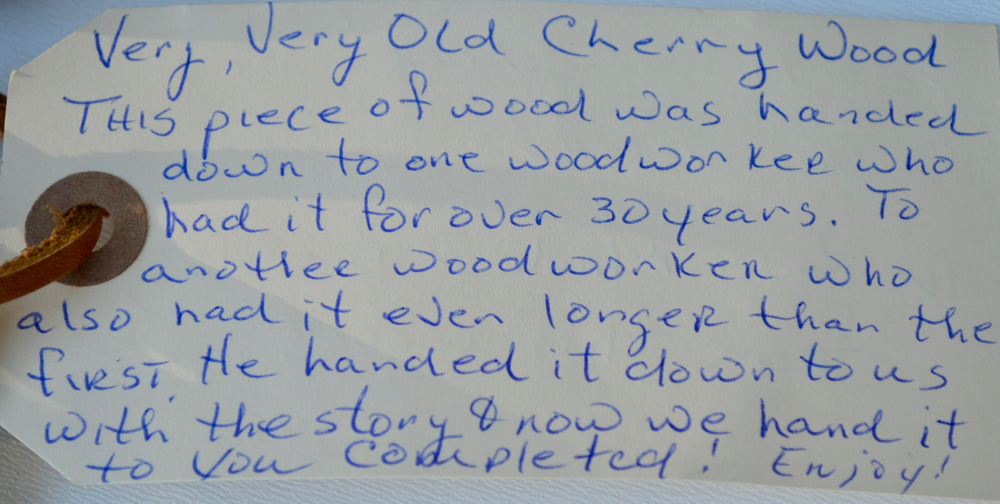 Very, Very Old Cherry Wood
THIS piece of wood was handed
down to one woodworker who
had it for over 30 years. To
another woodworker who
also had it even longer than the
first. He handed it down to us
with the story & now we hand it
to you completed! Enjoy!